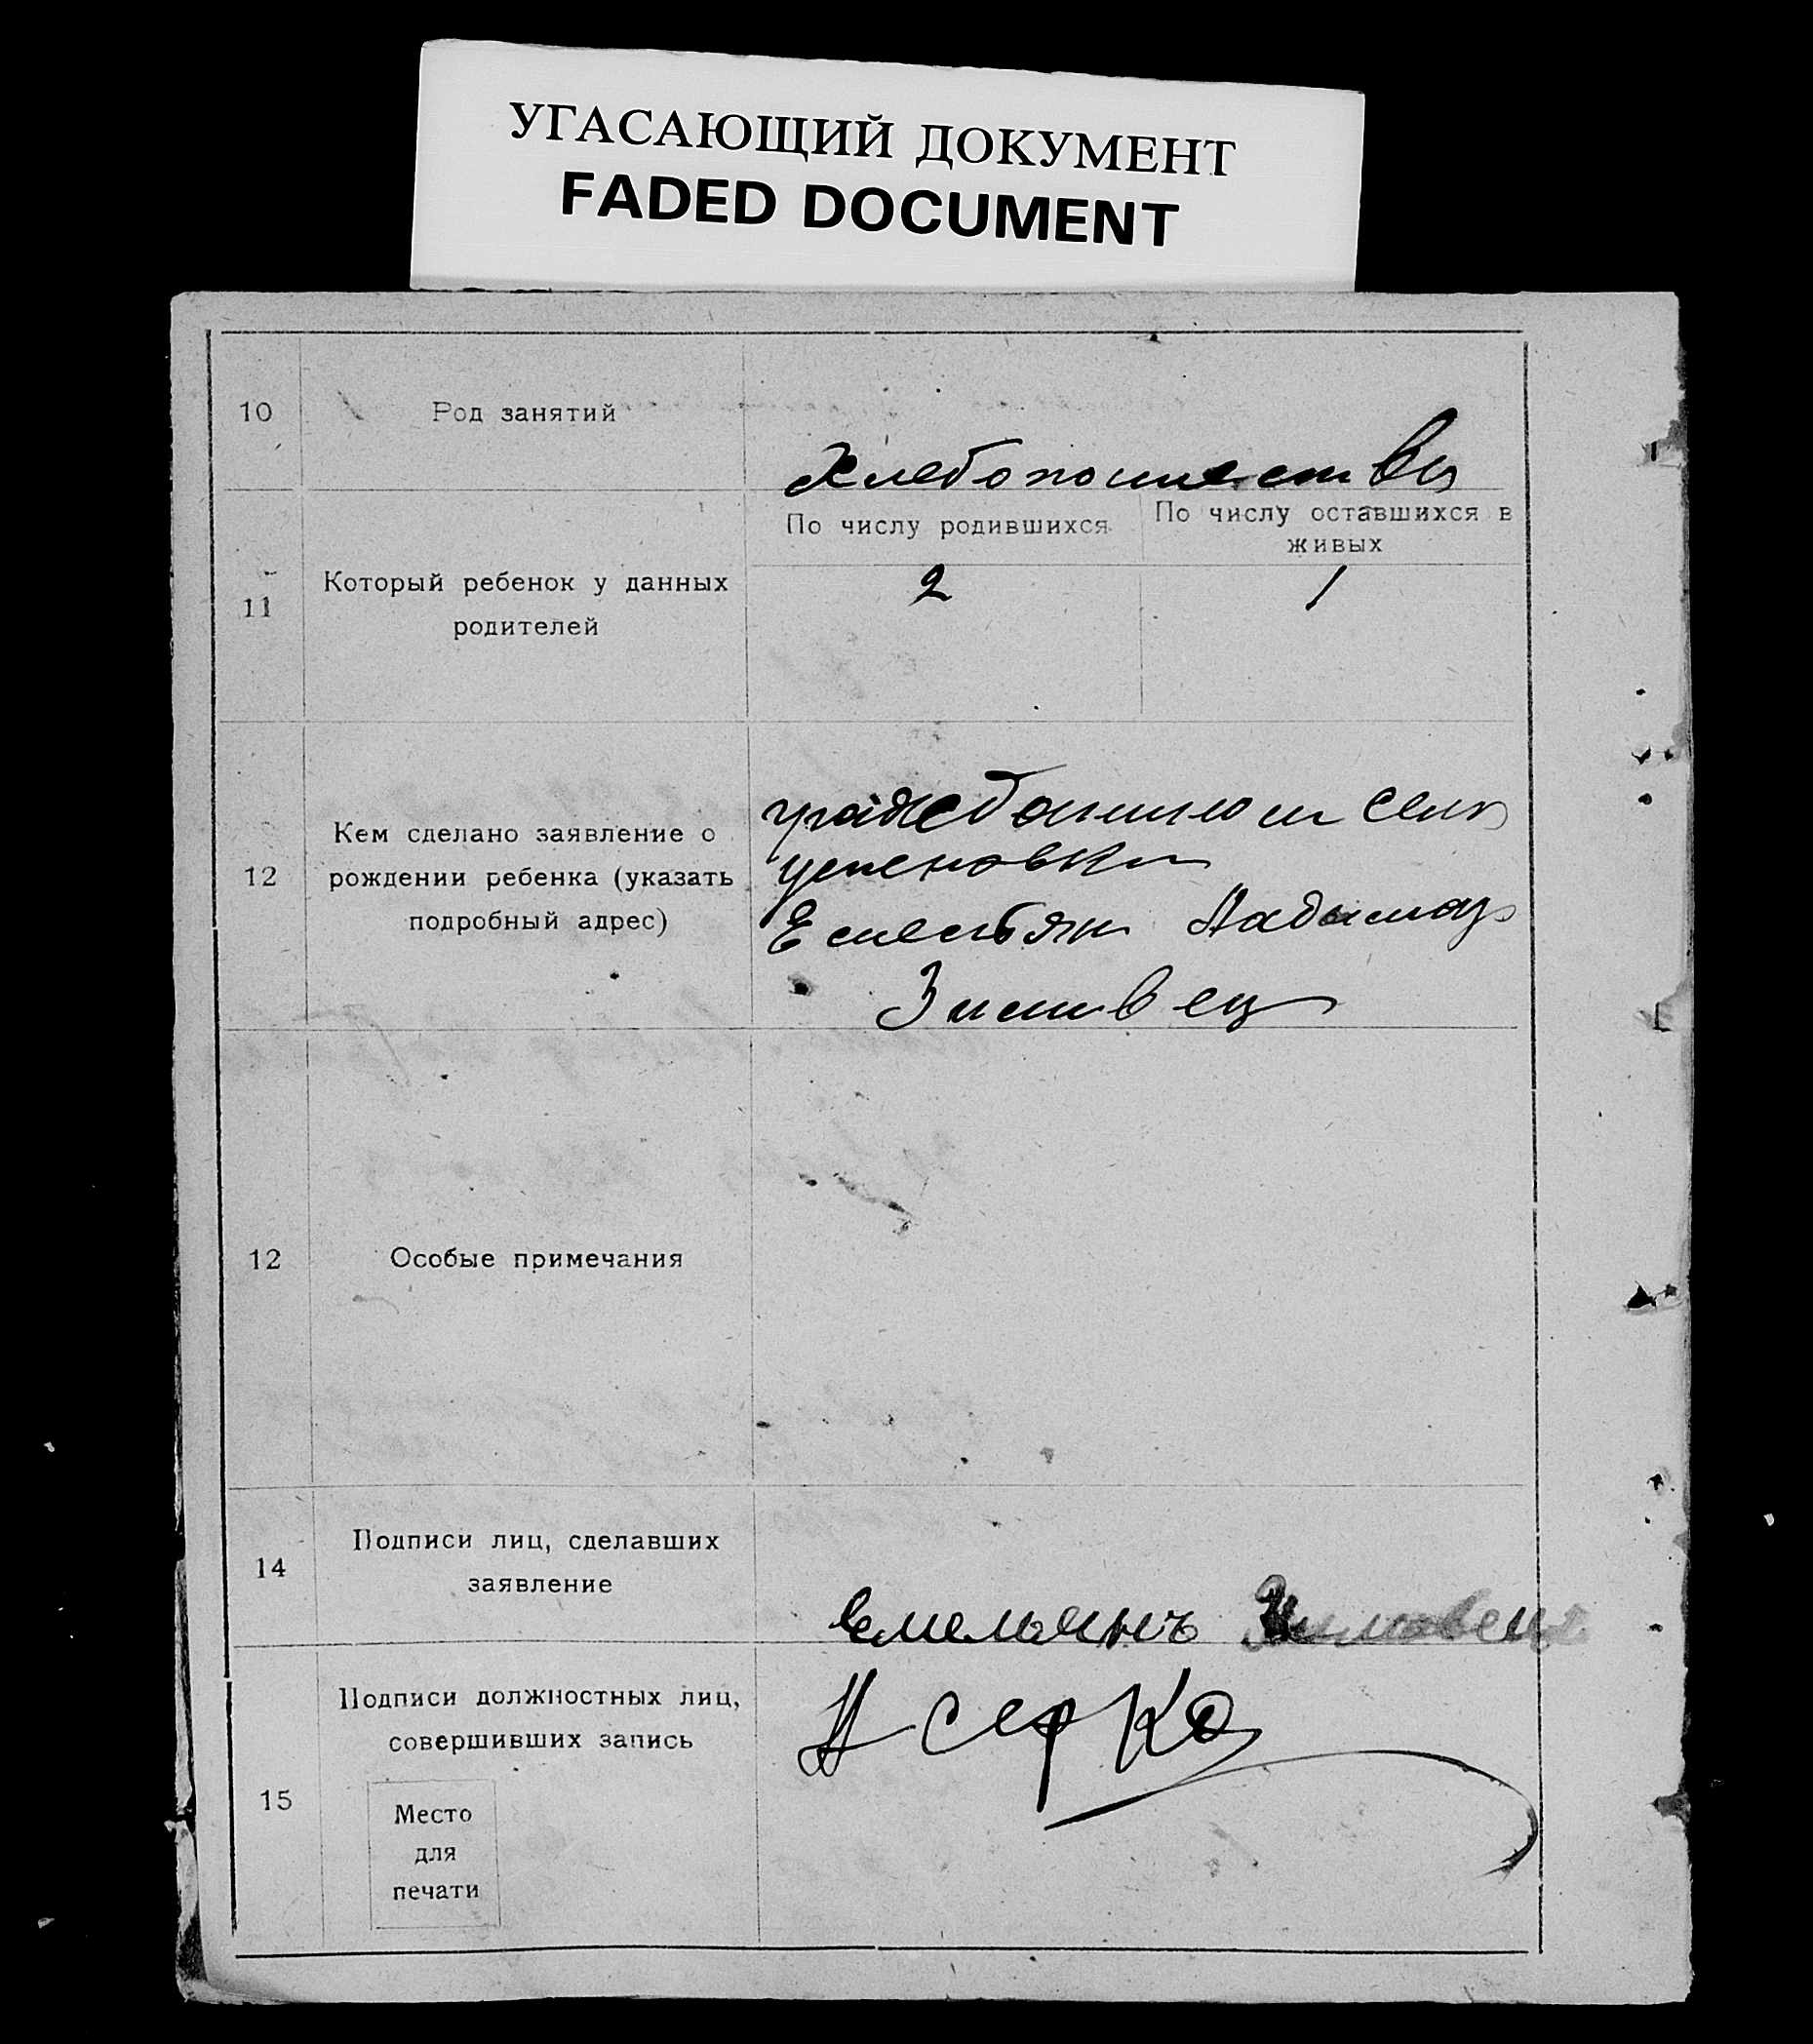 УГАСАЮЩИЙ ДОКУМЕНТ
FADED DOCUMENT
10
Род занятий
Хлебопашества
11
Который ребенок у данных
родителей
По числу родившихся
По числу оставшихся в
живых
2
1
12
Кем сделано заявление о
рождении ребенка (указать
подробный адрес)
села
Зимовец
12
Особые примечания
14
Подписи лиц, сделавших
заявление
Емельянъ Зимовец
15
Подписи должностных лиц,
совершивших запись
Серко
Место
для
печати